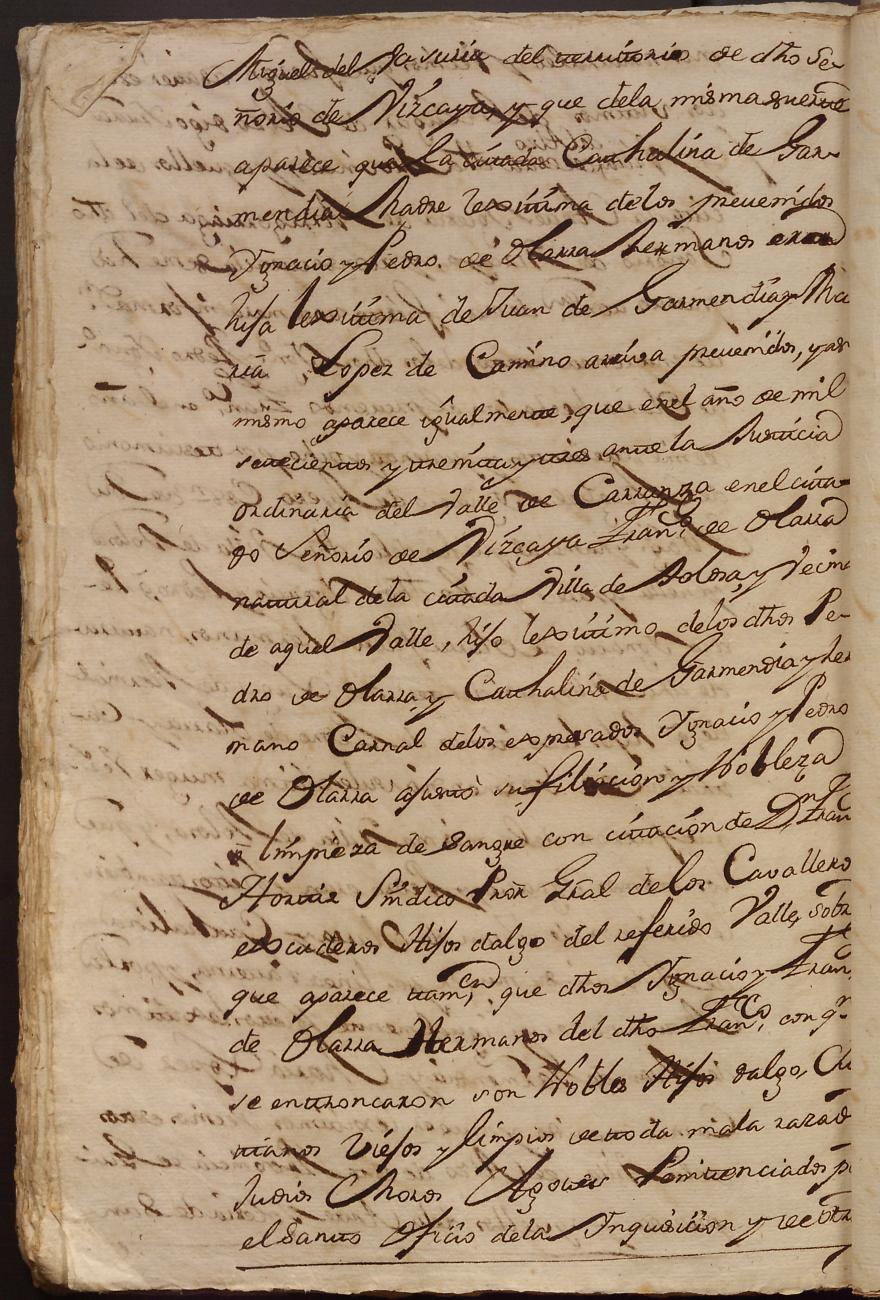 Miguel del Jasuria del territorio de dho Se-
ñorio de Vizcaya, y que dela misma suerte
aparece que la citada Cathalina de Gar-
mendia Madre lexitima delos prevenidos
Ygnacio y Pedro de Olarra Hermanos era
hija lexitima de Juan de Garmendia y Ma
ria Lopez de Camino arriva prevenidos, y as
mismo aparece igualmente, que enel año de mil
setecientos y treinta y tres ante la Justicia
ordinaria del Valle de Carranza enel cita-
do Señorio de Vizcaya Franco. de Olarra
natural dela citada Villa de Tolosa, y Vecino
de aquel Valle, hijo lexitimo delos dhos Pe-
dro de Olarra, y Cathalina de Garmendia y her
mano Carnal delos expresados Ygnacio y Pedro
de Olarra asento su filiacion y Nobleza
limpieza de Sangre con citacion de Dn Franco
Síndico Pror Gral delos Cavalleros
escuderos Hijos dalgo del referido Valle, sobre
que aparece tamen. que dhos Ygnacio y Fran
de Olarra Hermanos del dho Franco. con qn
se entroncaron son Nobles Hijos dalgo, Chr
tianos Viejos y limpios de toda mala raza de
Judios Moros Penitenciados p
el Santo Oficio dela Ynquisicion y de otra